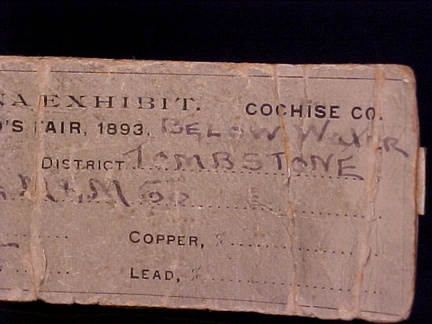 NA EXHIBIT. COCHISE CO.
D'S FAIR, 1893. BELOW WATER
DISTRICT TOMBSTONE
M. & M Co
COPPER, %
LEAD, %